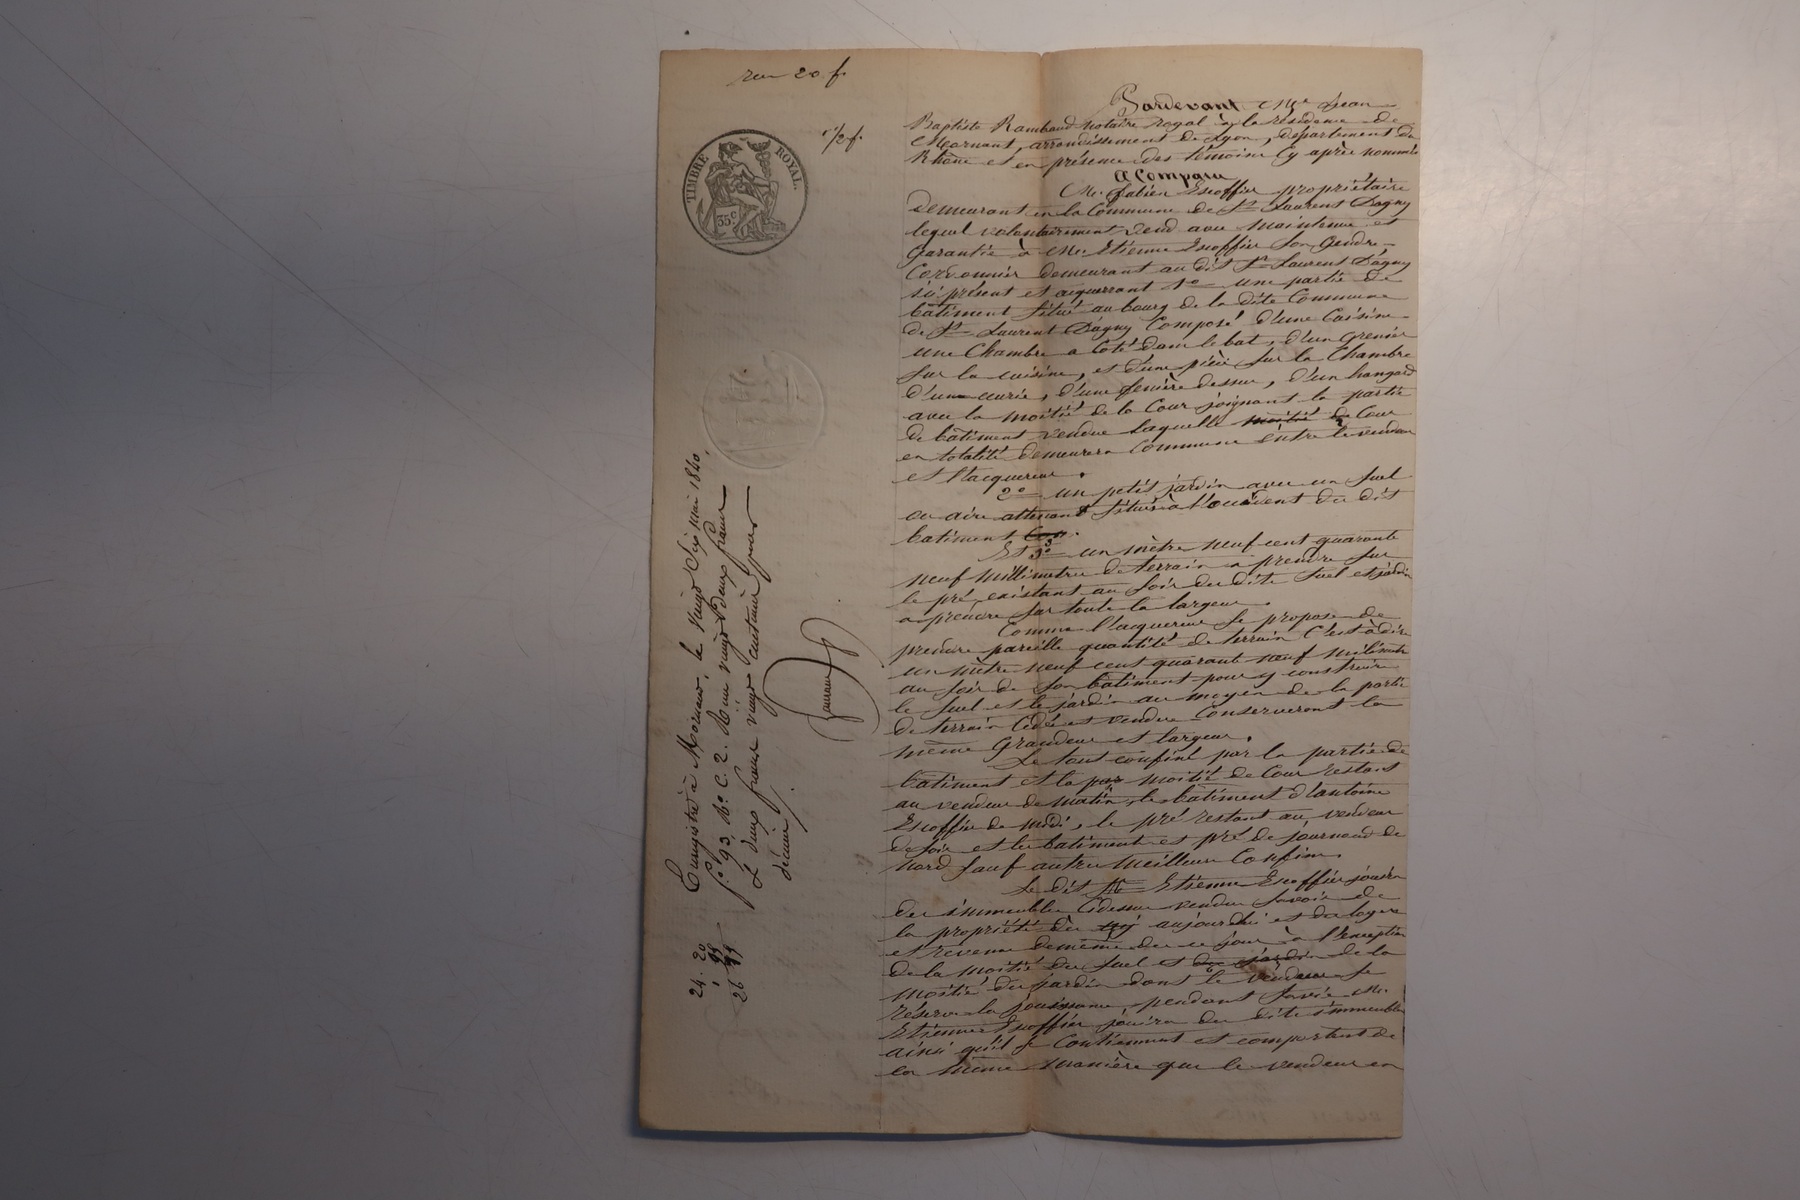 20 f.
TIMBRE ROYAL.
35c
Pardevant Me Jean
Baptiste Rambaud notaire royal à la résidence de
Mornant, arrondissement de Lyon, département du
Rhône et en présence des témoins cy après nommés
A Comparu
Mr. fabien Escoffier propriétaire
demeurant en la Commune de St Laurent Dagny
lequel volontairement vend avec maintenue et
garantie à Mr Etienne Escoffier son gendre
Cordonnier demeurant au dit St Laurent Dagny
ici présent et acquerrant 1o une partie de
bâtiment situé au bourg de la dite Commune
de St Laurent Dagny Composé d'une Cuisine
une Chambre a Coté dans le bat, d'un grenier
sur la cuisine, et d'une pièce sur la Chambre
d'une ecurie, d'une fenière dessus, d'un hangard
avec la moitié de la Cour joignant la partie
de bâtiment vendue laquelle moitié de Cour
en totalité demeurera Commune entre le vendeur
et l'acquereur.
2o un petit jardin avec un suel
ou aire attenant situés à l'occident du dit
batiment
Et 3o un mètre neuf cent quarante
neuf millimetres de terrain a prendre sur
le pré existant au soir du dite suel et jardin
a prendre sur toute la largeur.
Comme l'acquereur se propose de
prendre pareille quantité de terrain C'est à dire
un mètre neuf cent quarante neuf milimetre
au soir de son bâtiment pour y construire
le suel et le jardin au moyen de la partie
de terrain Cédée et vendue Conserveront la
même Grandeur et largeur.
Le tout confiné par la partie de
batiment et la par moitié de Cour restant
au vendeur de matin, le bâtiment d'antoine
Escoffier de midi, le pré restant au vendeur
de soir et les batiment et pré de journoud de
nord sauf autres meilleurs Confins.
Le dit Mr Etienne Escoffier jouira
des immeubles Cidessus vendus savoir de
la propriété dès aujourdhui et des loyers
et revenus demême dès ce jour à l'exception
de la moitié du suel et du jardin de la
moitié du jardin dont le vendeur se
réserve la jouissance pendant sa vie Mr.
Etienne Escoffier jouira des dits immeubles
ainsi qu'il se Contiennent et comportent de
la même manière que le vendeur en
Enregistré à Mornant, le vingt six mai 1840,
fo 93 Ro C. 2. Reçu vingt deux francs
& deux francs vingt centimes pour
décime.
24. 20